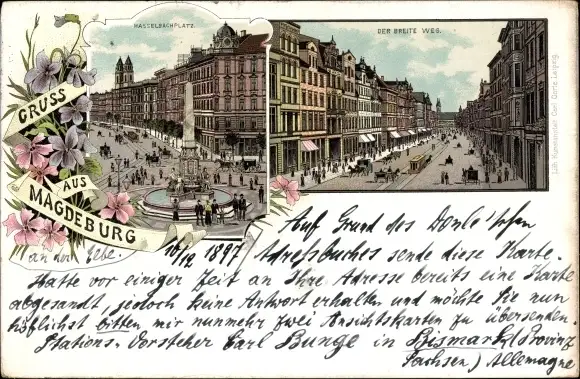 HASSELBACHPLATZ.
DER BREITE WEG.
GRUSS
AUS
MAGDEBURG
an der Elbe.
16/12 1897
Auf Grund des Donle'schen
Adreßbuches sende diese Karte.
Hatte vor einiger Zeit an Ihre Adresse bereits eine Karte
abgesandt, jedoch keine Antwort erhalten und möchte Sie nun
höflichst bitten mir nunmehr zwei Ansichtskarten zu übersenden.
Stations-Vorsteher Carl Bunge in Bismark (Provinz
Sachsen.) Allemagne
Lith. Kunstanstalt Carl Leipzig.